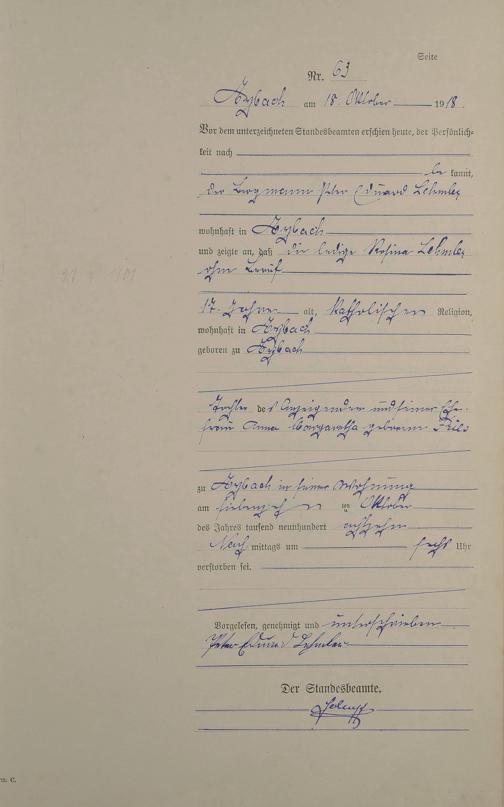 Seite
Nr. 63
Arzbach am 18. Oktober 1918.
Vor dem unterzeichneten Standesbeamten erschien heute, der Persönlich-
keit nach
be kannt,
der Bergmann Peter Eduard Lehmler
wohnhaft in Arzbach
und zeigte an, daß die ledige Rosina Lehmler
ohne Beruf
17 Jahre alt, katholischen Religion,
wohnhaft in Arzbach
geboren zu Arzbach
Tochter des Anzeigenden und seiner Ehe-
frau Anna Margaretha geborene Fries
zu Arzbach in seiner Wohnung
am siebenzehn ten Oktober
des Jahres tausend neunhundert achtzehn
Nach mittags um sechs Uhr
verstorben sei.
Vorgelesen, genehmigt und unterschrieben
Peter Eduard Lehmler
Der Standesbeamte.
C.